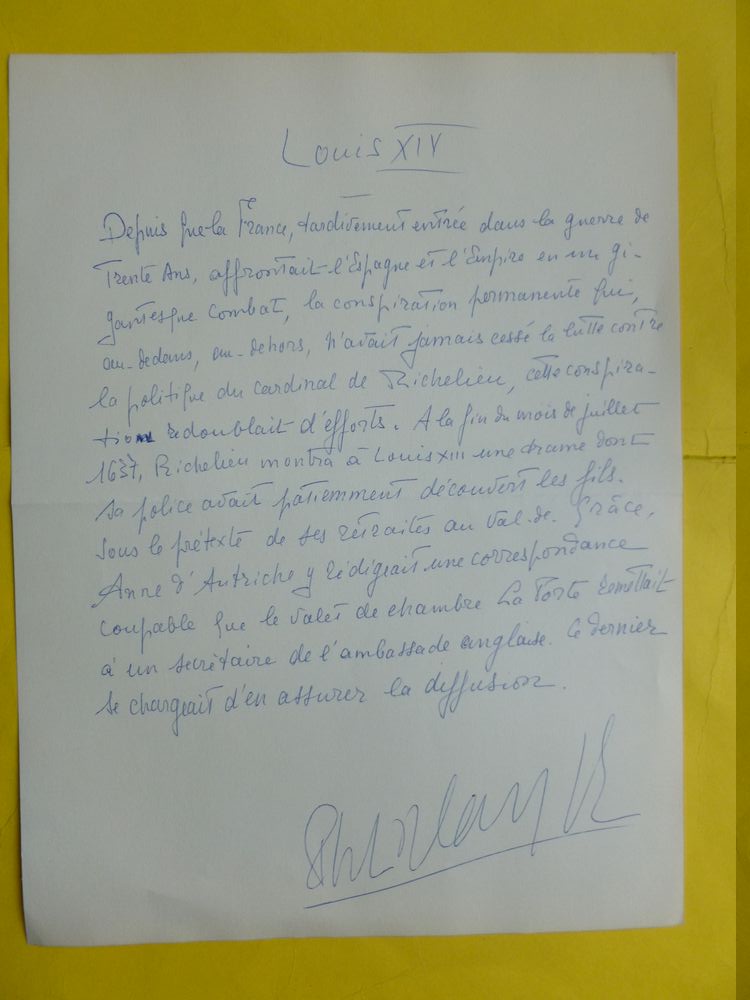 Louis XIV
Depuis que la France, tardivement entrée dans la guerre de
Trente Ans, affrontait l'Espagne et l'Empire en un gi-
gantesque combat, la conspiration permanente qui,
au-dedans, au-dehors, n'avait jamais cessé la lutte contre
la politique du cardinal de Richelieu, cette conspira-
tion redoublait d'efforts. A la fin du mois de juillet
1637, Richelieu montra à Louis XIII une drame dont
sa police avait patiemment découvert les fils.
Sous le prétexte de ses retraites au Val-de-Grâce,
Anne d'Autriche y rédigeait une correspondance
coupable que le valet de chambre La Porte remettait
à un secrétaire de l'ambassade anglaise. Ce dernier
se chargeait d'en assurer la diffusion.